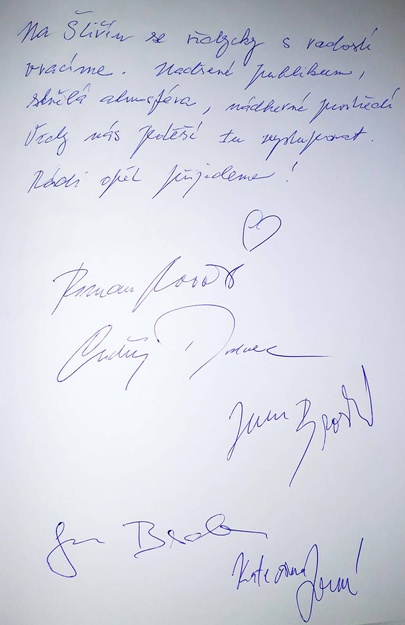 Na Šlivím se vždycky s radostí
vracíme. Nadšené publikum,
skvělá atmosféra, nádherné prostředí
Vždy nás potěší tu vystupovat.
Rádi opět přijedeme!
Roman
Ondřej
Jan
Kateřina